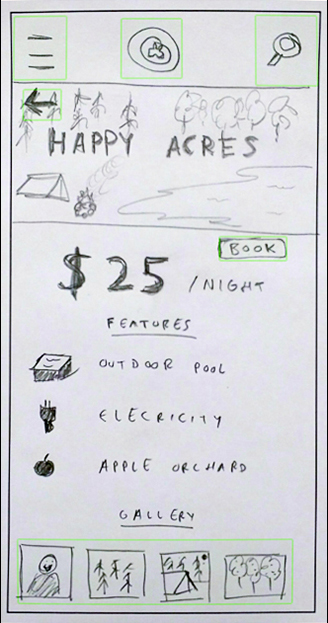 HAPPY ACRES
BOOK
$25 /NIGHT
FEATURES
OUTDOOR POOL
ELECRICITY
APPLE ORCHARD
GALLERY